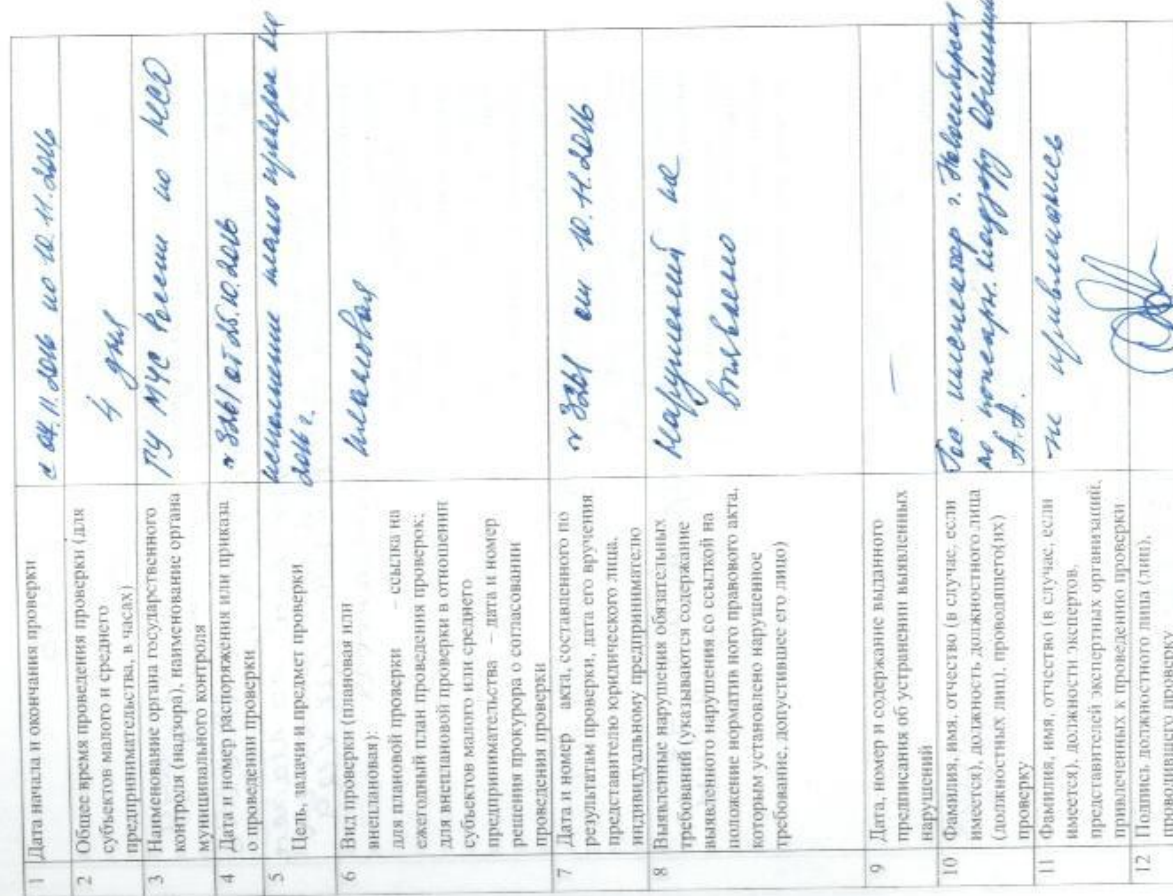 1
Дата начала и окончания проверки
с 07.11.2016 по 10.11.2016
2
Общее время проведения проверки (для
субъектов малого и среднего
предпринимательства, в часах)
4 дня
3
Наименование органа государственного
контроля (надзора), наименование органа
муниципального контроля
ГУ МЧС России по НСО
4
Дата и номер распоряжения или приказа
о проведении проверки
№ 3261 от 25.10.2016
5
Цель, задачи и предмет проверки
исполнение плана проверок на
2016 г.
6
Вид проверки (плановая или
внеплановая):
для плановой проверки – ссылка на
ежегодный план проведения проверок;
для внеплановой проверки в отношении
субъектов малого или среднего
предпринимательства – дата и номер
решения прокурора о согласовании
проведения проверки
плановая
7
Дата и номер акта, составленного по
результатам проверки, дата его вручения
представителю юридического лица,
индивидуальному предпринимателю
№ 3261 от 10.11.2016
8
Выявленные нарушения обязательных
требований (указываются содержание
выявленного нарушения со ссылкой на
положение норматив ного правового акта,
которым установлено нарушенное
требование, допустившее его лицо)
Нарушений не
выявлено
9
Дата, номер и содержание выданного
предписания об устранении выявленных
нарушений
—
10
Фамилия, имя, отчество (в случае, если
имеется), должность должностного лица
(должностных лиц), проводящего(их)
проверку
Гос. инспектор г. Новосибирска
по пожарн. надзору
А.А.
11
Фамилия, имя, отчество (в случае, если
имеется), должности экспертов,
представителей экспертных организаций,
привлеченных к проведению проверки
не привлекались
12
Подпись должностного лица (лиц),
проводившего проверку